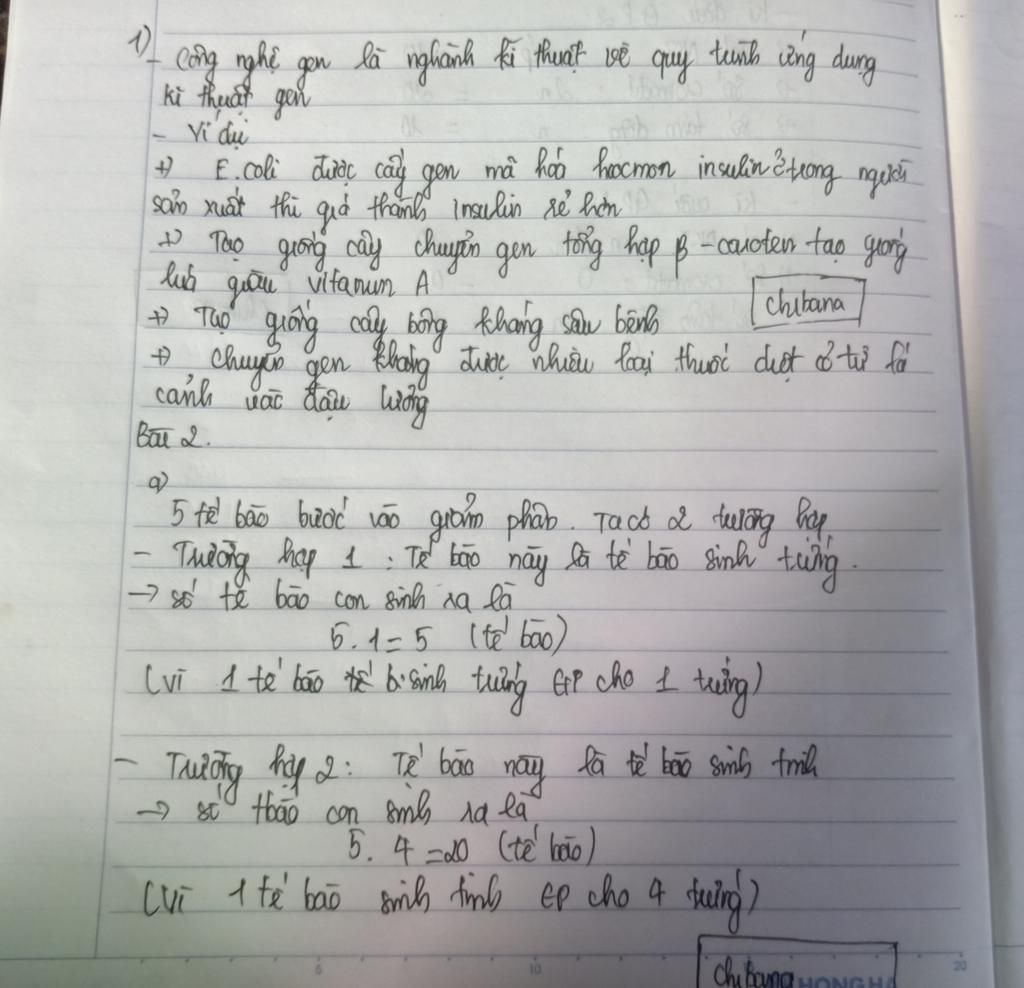 1)
- Công nghệ gen là nghành kĩ thuật về quy trình ứng dụng
kĩ thuật gen
- Ví dụ
+) E.coli được cấy gen mã hoá hoocmon insulin ở trong người
sản xuất thì giá thành insulin rẻ hơn
+) Tạo giống cây chuyển gen tổng hợp β-caroten tạo giống
lúa giàu vitamin A
chibana
+) Tạo giống cây bông kháng sâu bệnh
+) chuyển gen kháng được nhiều loại thuốc diệt cỏ từ
cảnh vào đậu tương
Bài 2.
a)
5 tế bào bước vào giảm phân. Ta có 2 trường hợp
- Trường hợp 1 : Tế bào này là tế bào sinh trứng.
→ số tế bào con sinh ra là
5. 1 = 5 (tế bào)
(vì 1 tế bào sinh trứng GP cho 1 trứng)
- Trường hợp 2: Tế bào này là tế bào sinh tinh
→ số tbào con sinh ra là
5. 4 = 20 (tế bào)
(vì 1 tế bào sinh tinh GP cho 4 trứng)
chibana
HONG HA
5 10 20